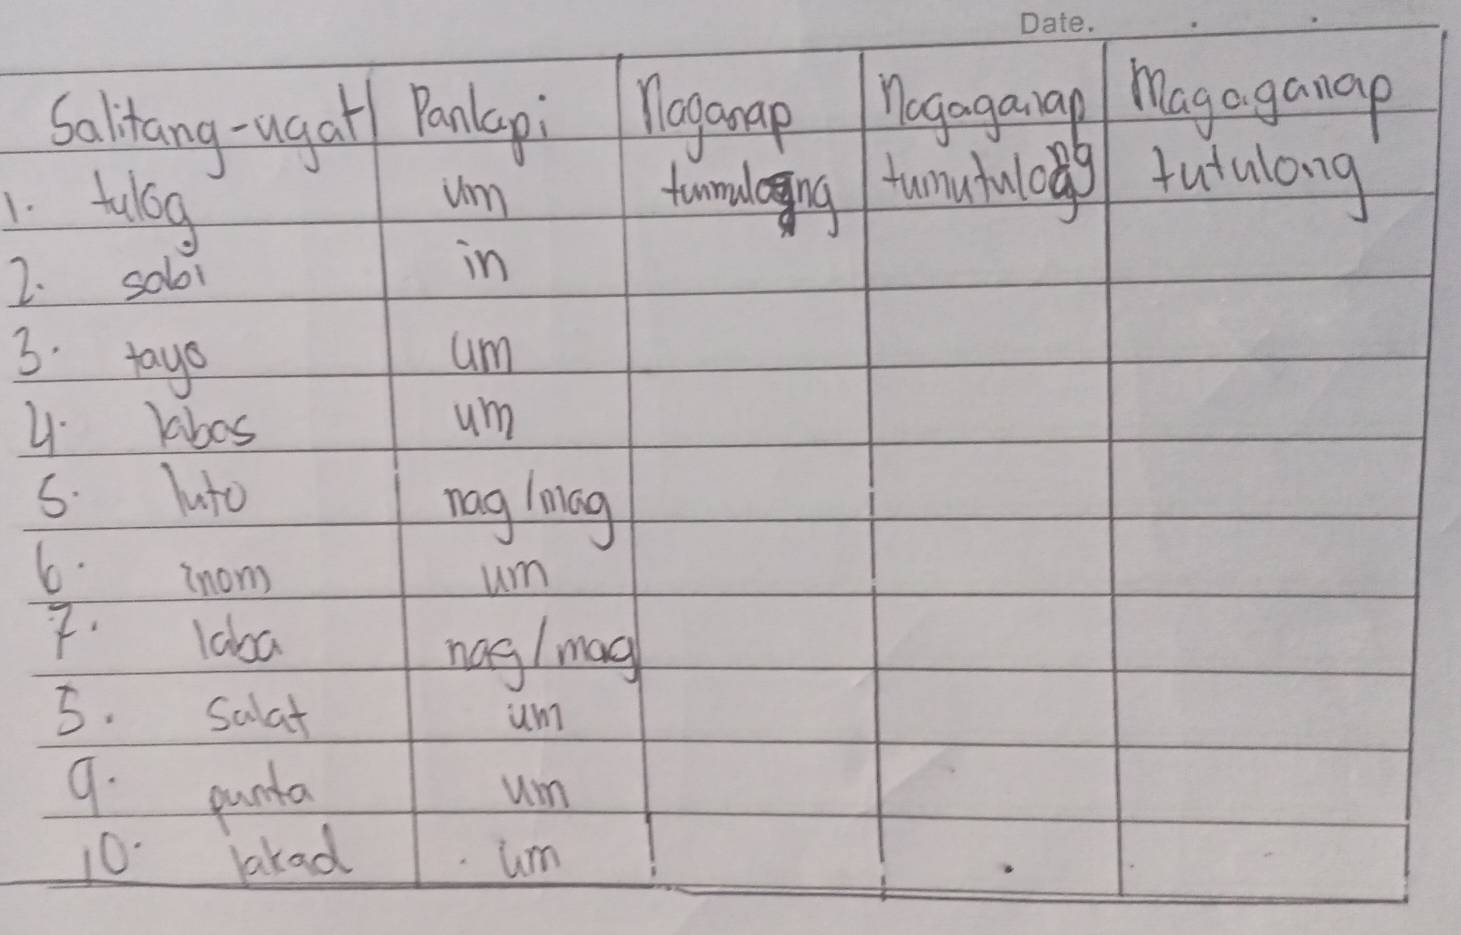 Date.
Salitang-ugat Panlapi Naganap Nagaganap Magaganap
1. tulog um tumulong tumutulong tutulong
2. sabi in
3. tayo um
4. labas um
5. luto nag/mag
6. inom um
7. laba nag/mag
8. Salat um
9. punta um
10. lakad um